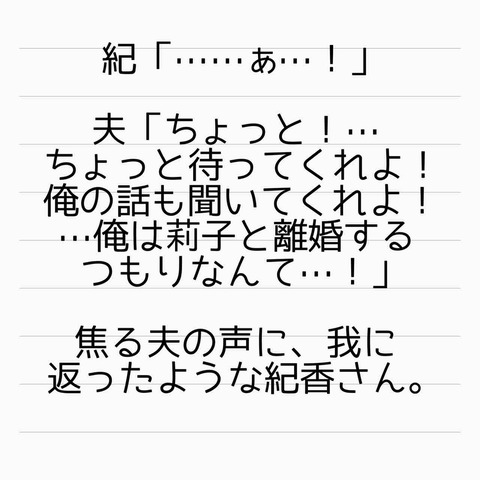 紀「……ぁ…！」
夫「ちょっと！…
ちょっと待ってくれよ！
俺の話も聞いてくれよ！
…俺は莉子と離婚する
つもりなんて…！」
焦る夫の声に、我に
返ったような紀香さん。